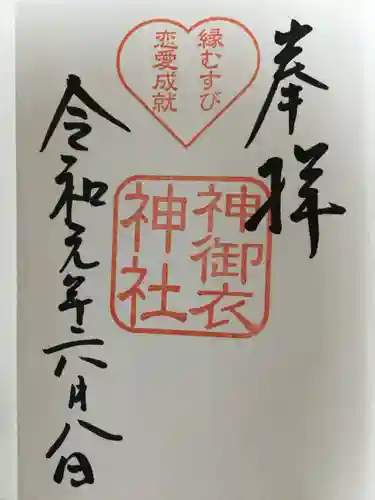 奉拝
縁むすび
恋愛成就
神御衣
神社
令和元年六月八日